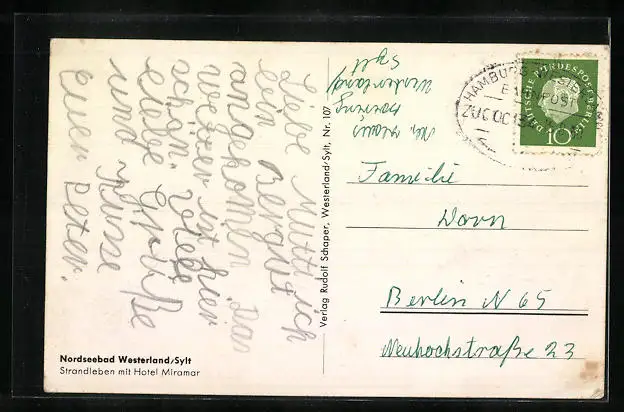 Liebe Mutti ich
bin Bergut
angekomen. Das
wetter ist hier
schön. Viele
eliebe Grüße
und Küsse
Euer Peter.
Westerland/
Sylt
Verlag Rudolf Schaper, Westerland/Sylt, Nr. 107
HAMBURG
BAHNPOST
ZUG
DEUTSCHE BUNDESPOST BERLIN
10
Familie
Dorn
Berlin N 65
Neuhochstraße 23
Nordseebad Westerland/Sylt
Strandleben mit Hotel Miramar